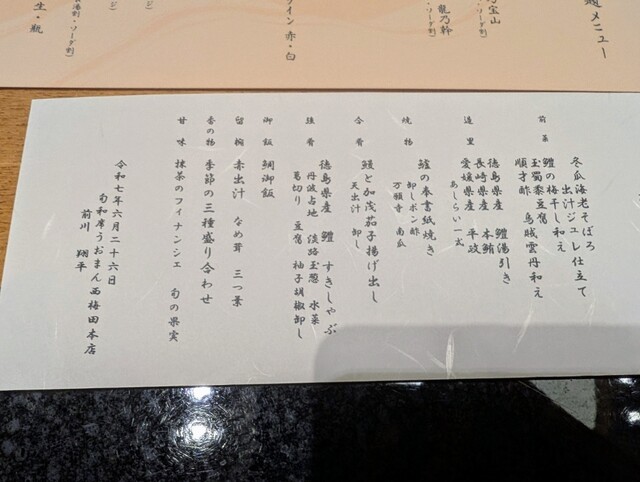 メニュー
宝山
龍乃幹
ソーダ割
イン 赤・白
ソーダ割
生・瓶
前菜
冬瓜海老そぼろ
出汁ジュレ仕立て
鱧の梅干し和え
玉蜀黍豆腐
順才酢 烏賊雲丹和え
造里
徳島県産 鱧湯引き
長崎県産 本鮪
愛媛県産 平政
あしらい一式
焼物
鱸の奉書紙焼き
卸しポン酢
万願寺 南瓜
合肴
鰻と加茂茄子揚げ出し
天出汁 卸し
強肴
徳島県産 鱧 すきしゃぶ
丹波占地 淡路玉葱 水菜
葛切り 豆腐 柚子胡椒卸し
御飯 鯛御飯
留椀 赤出汁 なめ茸 三つ葉
香の物 季節の三種盛り合わせ
甘味 抹茶のフィナンシェ 旬の果実
令和七年六月二十六日
旬和席うおまん西梅田本店
前川 翔平